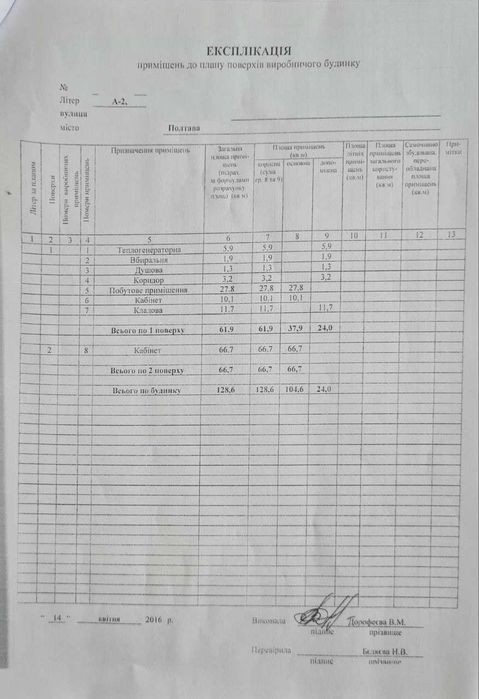 ЕКСПЛІКАЦІЯ
приміщень до плану поверхів виробничого будинку
№
Літер А-2,
вулиця
місто Полтава
Літер за планом
Поверхи
Номери виробничих приміщень
Номери приміщень
Призначення приміщень
Загальна площа приміщень (підрах. за формулами розрахунку площ) (кв м)
Площа приміщень (кв.м)
корисна (сума гр. 8 та 9)
основна
допоміжна
Площа літніх приміщень (кв.м)
Площа приміщень загального користування (кв м)
Самочинно збудована, переобладнана площа приміщень (кв.м)
Примітки
1 2 3 4 5 6 7 8 9 10 11 12 13
1 1 Теплогенераторна 5,9 5,9 5,9
2 Вбиральня 1,9 1,9 1,9
3 Душова 1,3 1,3 1,3
4 Коридор 3,2 3,2 3,2
5 Побутове приміщення 27,8 27,8 27,8
6 Кабінет 10,1 10,1 10,1
7 Кладова 11,7 11,7 11,7
Всього по 1 поверху 61,9 61,9 37,9 24,0
2 8 Кабінет 66,7 66,7 66,7
Всього по 2 поверху 66,7 66,7 66,7
Всього по будинку 128,6 128,6 104,6 24,0
" 14 " квітня 2016 р. Виконала Дорофєєва В.М.
підпис прізвище
Перевірила Беляєва Н.В.
підпис прізвище